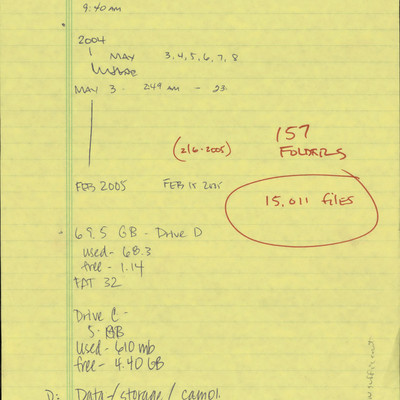 9:40 am
2004
MAY 3, 4, 5, 6, 7, 8
MAY 3 - 2:49 AM - 23
(2/6-2005)
157
FOLDERS
FEB 2005 FEB 15 2005
15,011 files
69.5 GB - Drive D
used - 68.3
free - 1.14
FAT 32
Drive C -
5. GB
used - 610 mb
free - 4.40 GB
D: Data-/storage/